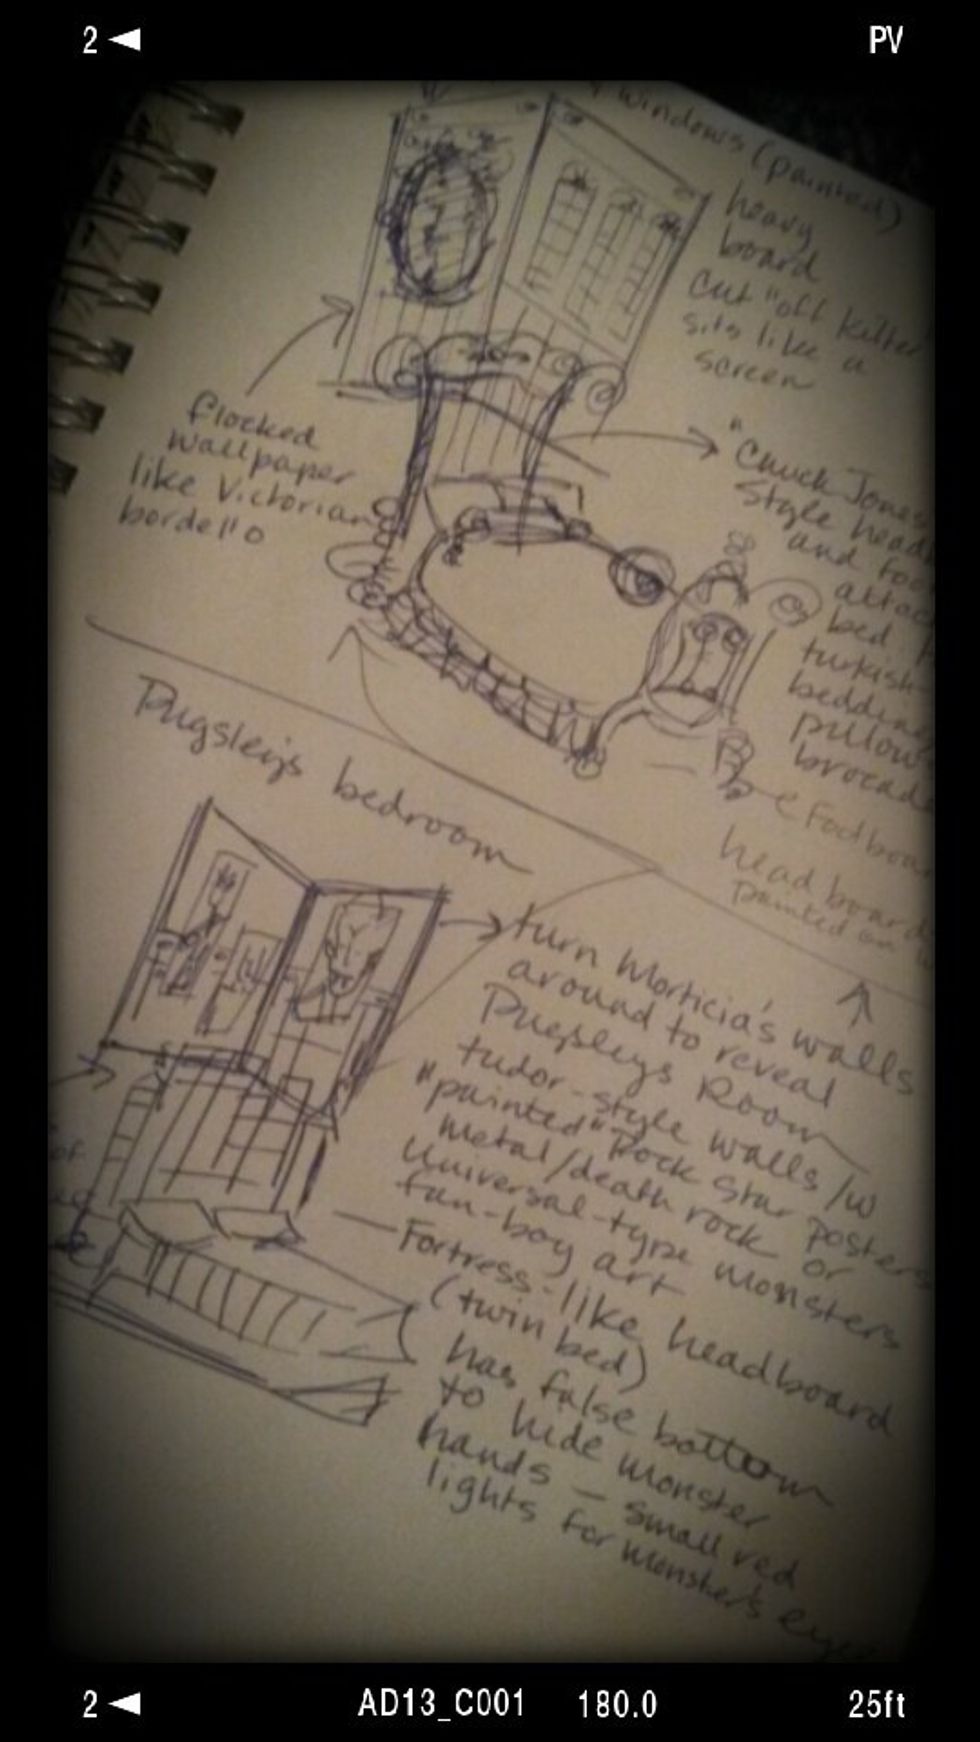 2 ◀
PV
windows (painted)
heavy
board
cut "off killter
sits like a
screen
flocked
wallpaper
like Victorian
bordello
"Chuck Jones
Style head
and foo
attac
bed
turkish
bedding
pillow
brocade
Footboar
headboard
painted on
Pugsley's bedroom
turn Morticia's walls
around to reveal
Pugsleys Room
tudor-style walls /w
"painted" Rock Star posters
metal/death rock or
Universal-type monsters
fan-boy art
Fortress-like headboard
(twin bed)
has false bottom
to hide monster
hands - small red
lights for monster's eyes
of
2 ◀
AD13_C001
180.0
25ft